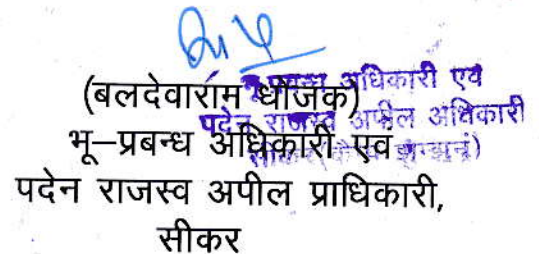 (बलदेवाराम धोजक)
भू-प्रबन्ध अधिकारी एवं
पदेन राजस्व अपील अधिकारी
भू–प्रबन्ध अधिकारी एवं
पदेन राजस्व अपील प्राधिकारी,
सीकर